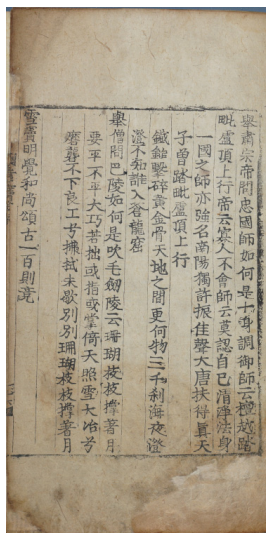 舉肅宗帝問忠國師如何是十身調御師云檀越踏
毗盧頂上行帝云寡人不會師云莫認自己清淨法身
一國之師亦強名南陽獨許振佳聲大唐扶得眞天
子曾踏毗盧頂上行
鐵鎚擊碎黃金骨天地之間更何物三千刹海夜澄
澄不知誰入蒼龍窟
舉僧問巴陵如何是吹毛劒陵云珊瑚枝枝撐著月
要平不平大巧若拙或指或掌倚天照雪大冶兮
磨礱不下良工兮拂拭未歇別別珊瑚枝枝撐著月
雪竇明覺和尚頌古一百則竟